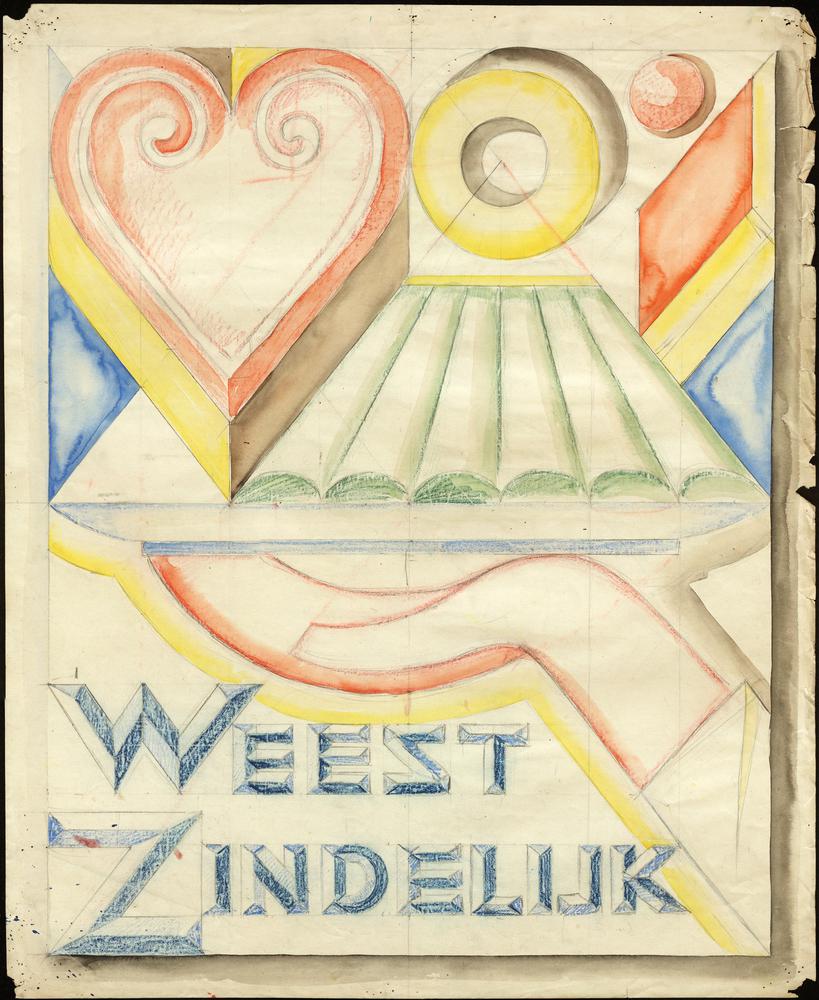 WEEST
ZINDELIJK